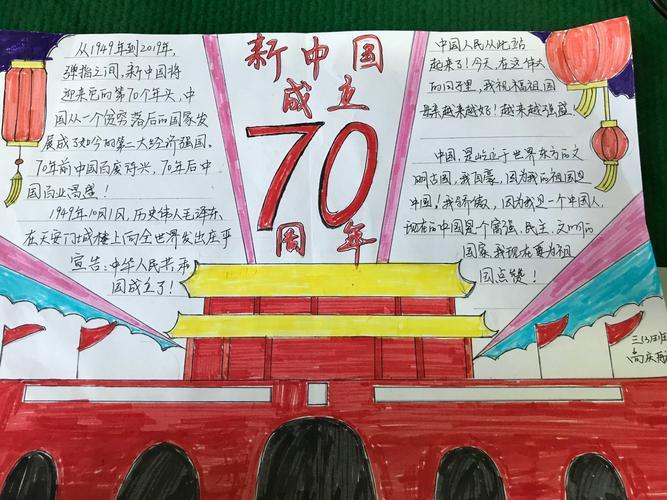 新中国
成立
70
周年
从1949年到2019年,
弹指之间,新中国将
迎来它的第70个年头,中
国从一个贫穷落后的国家发
展成了如今的第二大经济强国。
70年前中国百废待兴,70年后中
国百业昌盛!
1949年10月1日,历史伟人毛泽东
在天安门城楼上向全世界发出庄严
宣告:中华人民共和
国成立了!
中国人民从此站
起来了!今天在这伟大
的日子里,我祝福祖国
母亲越来越好!越来越强盛
中国,是屹立于世界东方的文
明古国,我自豪,因为我的祖国是
中国!我骄傲,因为我是一个中国人,
现在的中国是个富强、民主、文明的
国家,我现在要为祖
国点赞!